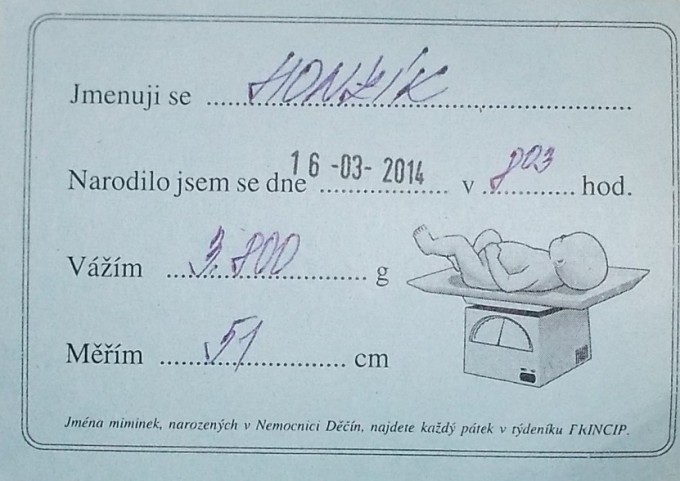 Jmenuji se HONZÍK
Narodilo jsem se dne 16-03-2014 v 903 hod.
Vážím 3.900 g
Měřím 51 cm
Jména miminek, narozených v Nemocnici Děčín, najdete každý pátek v týdeníku PRINCIP.